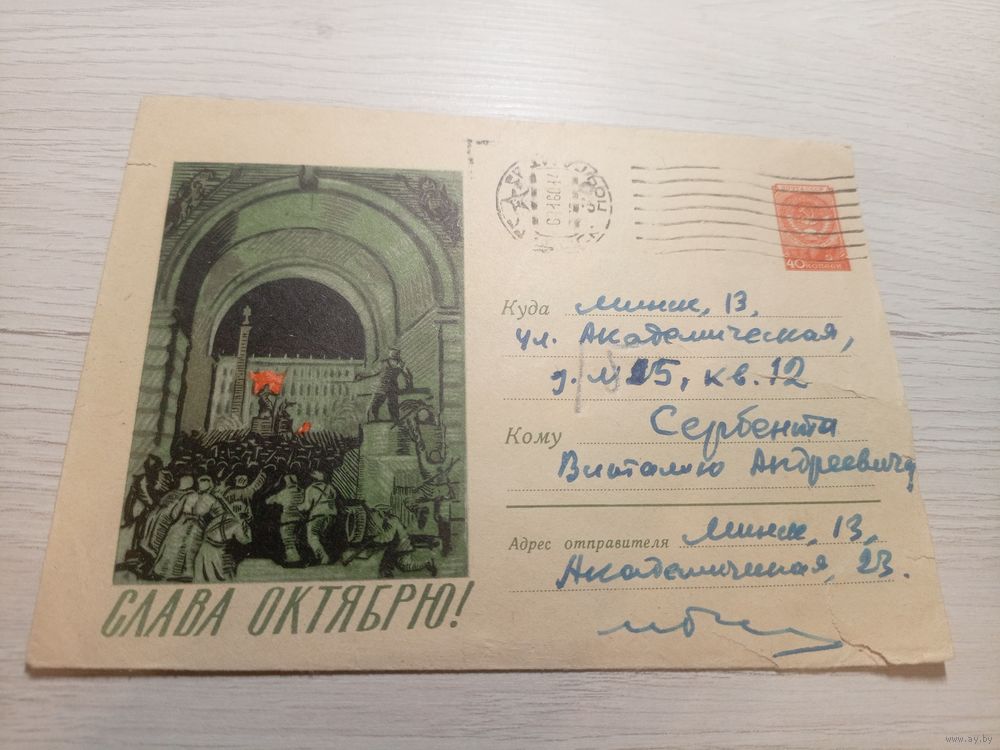 ПОЧТА СССР
40 КОПЕЕК
Куда Минск, 13,
ул. Академическая,
д. 15, кв. 12
Кому Сербента
Виталию Андреевичу
Адрес отправителя Минск, 13,
Академическая, 23.
СЛАВА ОКТЯБРЮ!
www.ay.by